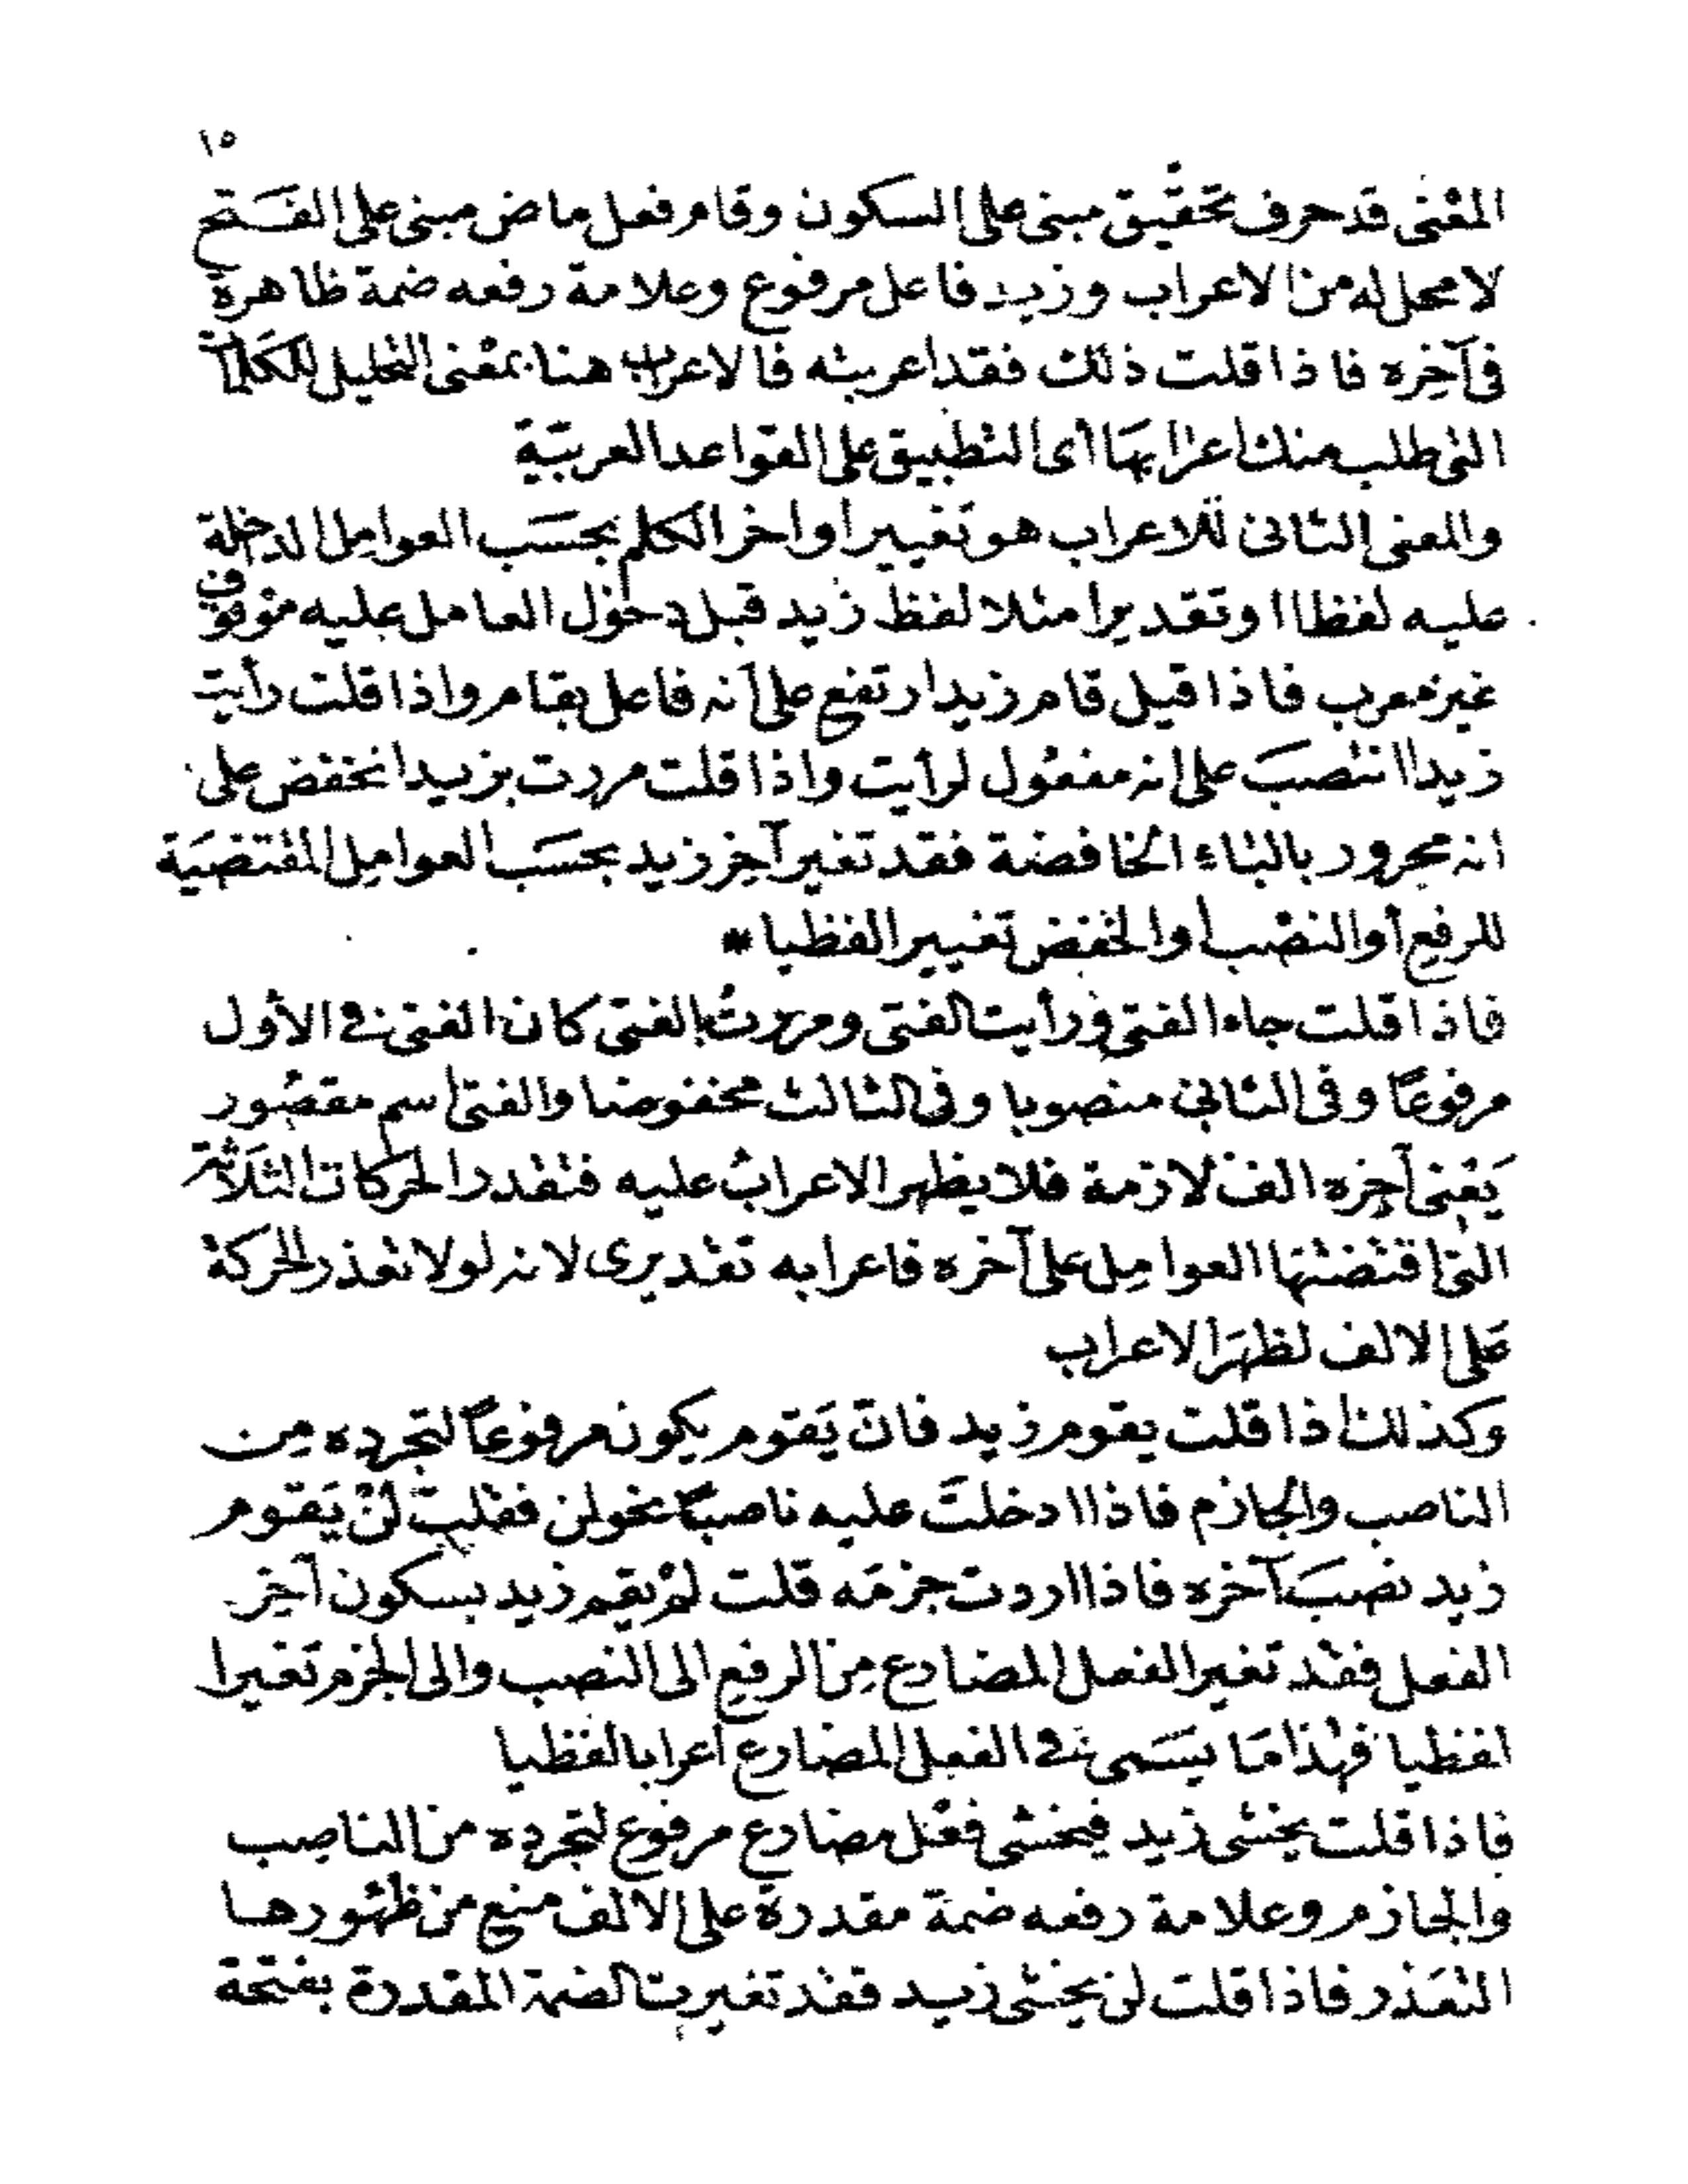 ١٥
المعنى قد حرف تحقيق مبنى على السكون وقام فعل ماض مبنى على الفتح
لا محل له من الاعراب وزيد فاعل مرفوع وعلامة رفعه ضمة ظاهرة
فى آخِره فاذا قلت ذلك فقد اعربته فالاعراب هنا بمعنى التحليل للكلمات
التى طلب منك اعرابها أى التطبيق على القواعد العربيّة
والمعنى الثانى للاعراب هو تغيير اواخر الكلم بحسَب العوامِل الداخلة
عليه لفظا او تقديرا مثلا لفظ زيد قبل دخول العامل عليه موقوف
غير معرب فاذا قيل قام زيد ارتفع على أنه فاعل بقام واذا قلت رأيت
زيدا انتصبَ على انه مفعول لرأيت واذا قلت مررت بزيد انخفض على
انه مجرور بالباء الخافضة فقد تغير آخِر زيد بحسَب العوامِل المقتضيَة
للرفع أو النصب أو الخفض تغييرا لفظيا *
فاذا قلت جاء الفتى ورأيت الفتى ومررتُ بالفتى كان الفتى فى الأول
مرفوعًا وفى الثانى منصوبا وفى الثالث مخفوضا والفتى اسم مقصور
يَعْنى آخِره الف لازمة فلا يظهر الاعرابُ عليه فتقدر الحركات الثلَاثة
التى اقتضتها العوامِل على آخره فاعرابه تقديرى لانه لولا تعذر الحركة
عَلى الالف لظهَر الاعراب
وكذلك اذا قلت يقوم زيد فانّ يَقوم يكون مرفوعًا لتجرده مِن
الناصب والجازم فاذا ادخلتَ عليه ناصبًا نحو لن فقلتَ لنْ يَقوم
زيد نصبَ آخره فاذا اردت جزمَه قلت لمْ يقم زيد بسكون آخِر
الفعل فقد تغير الفعل المضارع مِن الرفع الى النصب والى الجزم تغيرا
لفظيا فهٰذا مَا يسَمى فى الفعل المضارع أعرابا لفظيا
فاذا قلت يخشى زيد فيخشى فعْل مضارع مرفوع لتجرده من الناصِب
والجازم وعلامة رفعه ضمة مقدرة على الالف منع من ظهورها
التعَذر فاذا قلت لن يخشى زيد فقد تغيرت الضمة المقدرة بفتحة